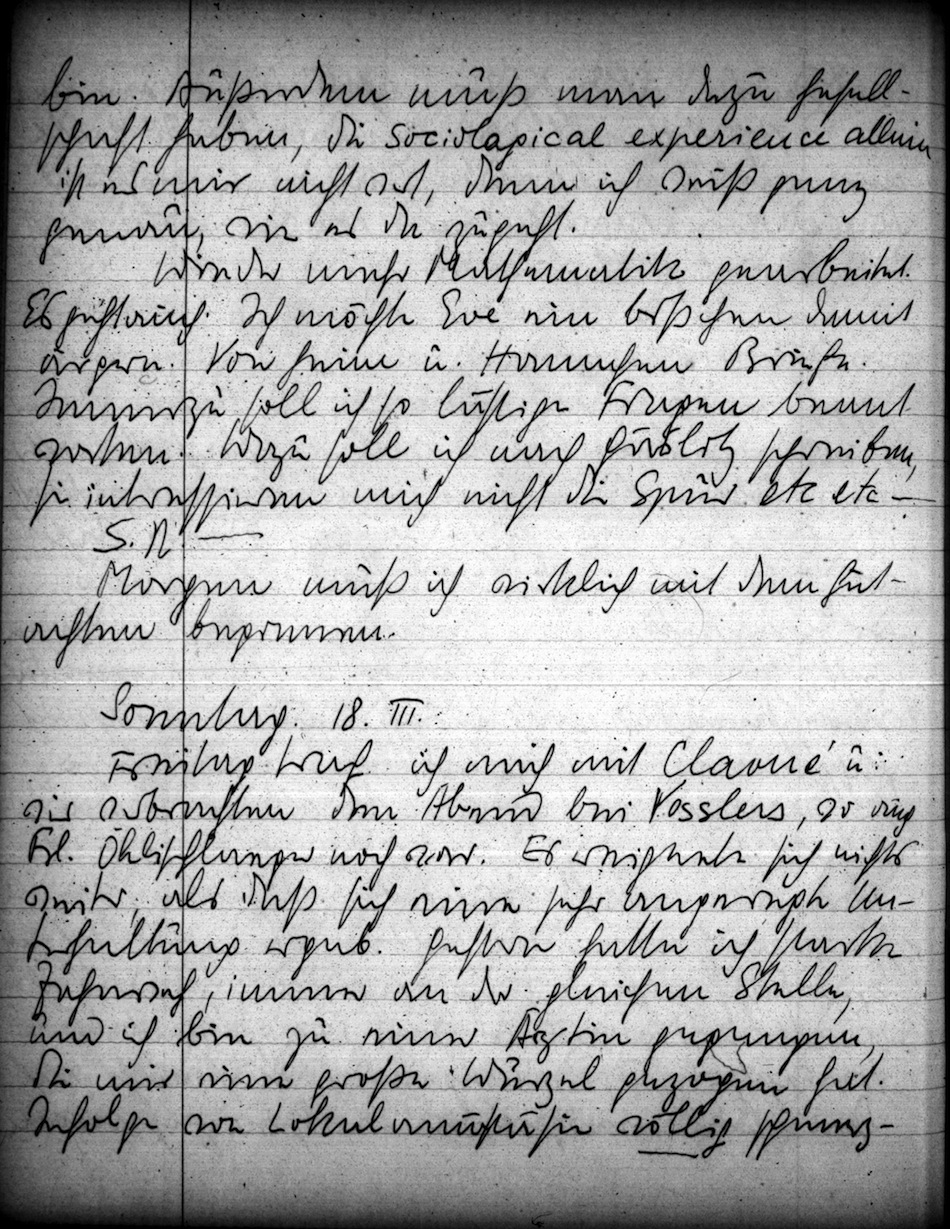 bin. Außerdem muß man dazu Gesell-
schaft haben, die sociological experience allein
ist es mir nicht wert, denn ich weiß ganz
genau, wie es da zugeht.
Wieder mehr Mathematik gearbeitet.
Es geht auch. Ich möchte Eve ein bißchen damit
ärgern. Von Heine u. Hannchen Briefe.
Immerzu soll ich so lustige Fragen beant
worten. Wozu soll ich nach Görlitz schreiben,
sie interessieren mich nicht die Spur etc etc —
S. N. —
Morgen muß ich wirklich mit dem Gut-
achten beginnen.
Sonntag. 18. III.
Freitag traf ich mich mit Claoué u.
wir verbrachten den Abend bei Vosslers, wo auch
Frl. Öhlschlaeger noch war. Es ereignete sich nichts
weiter, als daß sich eine sehr angeregte Un-
terhaltung ergab. Gestern hatte ich starke
Zahnweh, immer an der gleichen Stelle,
und ich bin zu einer Ärztin gegangen,
die mir eine große Wurzel gezogen hat.
Infolge von Lokalanästhesie völlig schmerz-